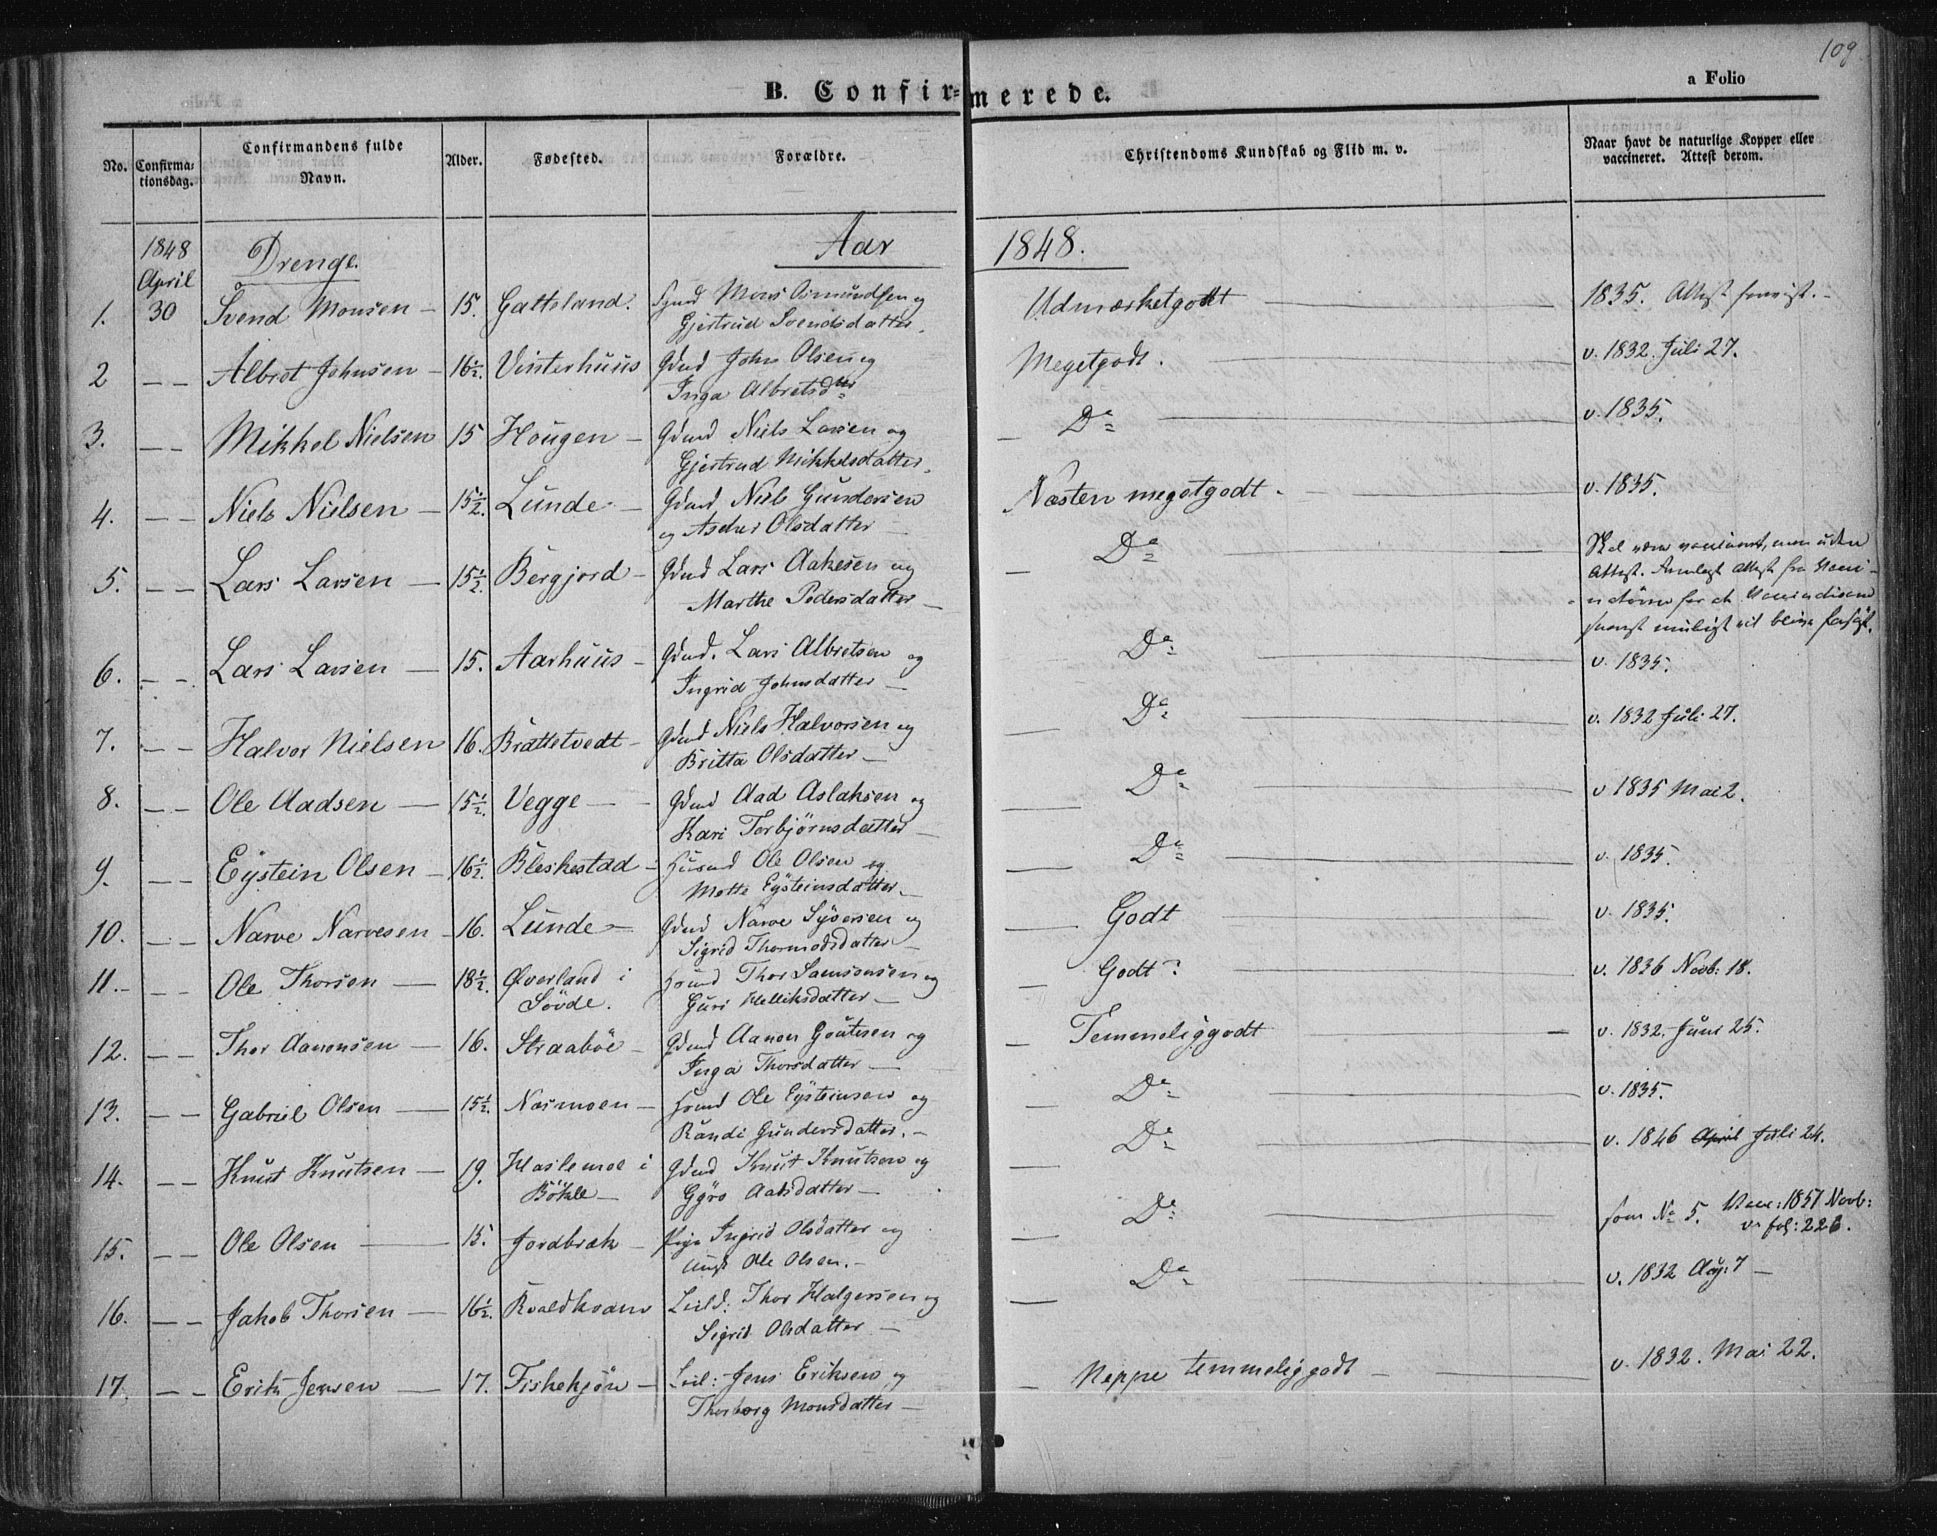 109
B. Confirmerede.
a Folio
No.
Confirma-
tionsdag.
Confirmandens fulde
Navn.
Alder.
Fødested.
Forældre.
Christendoms Kundskab og Flid m. v.
Naar havt de naturlige Kopper eller
vaccineret. Attest derom.
1848
April
Drenge.
Aar 1848.
1. 30 Svend Monsen — 15. Gattsland. Gmd Mons Osmundsen og
Gjertrud Svendsdatter.
Udmærketgodt
1835. Attest forevist.
2 — — Albret Johnsen — 16½. Vinterhuus Gdmd John Olsen og
Inga Albretsdtr
Megetgodt.
v. 1832. Juli 27.
3. — — Mikkel Nielsen 15 Hougen — Gdmd Niels Larsen og
Gjertrud Mikkelsdatter.
Do
v. 1835.
4. — — Niels Nielsen — 15½. Lunde — Gdmd Niels Gundersen
og Olsdatter
Næsten megetgodt.
v. 1835.
5. — — Lars Larsen — 15½. Bergjord — Gdmd Lars Aakesen og
Marthe Pedersdatter —
Do
Skal være vaccineret, men uden
Attest.
6. — — Lars Larsen — 15. Aarhuus — Gdmd. Lars Albretsen og
Ingrid Johnsdatter —
Do
v. 1835.
7. — — Halvor Nielsen 16. Brattetvedt — Gdmd Niels Halvorsen og
Britta Olsdatter —
Do
v. 1832 Juli 27.
8. — — Ole Aadsen — 15½. Vegge — Gdmd Aad Aslaksen og
Kari Torbjørnsdatter —
Do
v 1835 Mai 2.
9. — — Eystein Olsen — 16½. Bleskestad — Husmd Ole Olsen og
Mette Eysteinsdatter —
Do
v. 1835.
10. — — Narve Narvesen — 16. Lunde — Gdmd Narve Syversen og
Sigrid Thormodsdatter —
Godt
v. 1835.
11. — — Ole Thorsen — 18½. Øverland i
Søvde. Hsmd Thor Samsonsen og
Guri Helliksdatter —
Godt?
v. 1836 Novb: 18.
12. — — Thor Aanonsen — 16. Straabøe — Gdmd Aanon Goutesen og
Inga Thorsdatter —
Temmeliggodt
v. 1832. Juni 25.
13. — — Gabriel Olsen — 15½. Næsmoen — Hsmd Ole Eysteinsen og
Randi Gundersdatter. —
Do
v. 1835.
14. — — Knut Knutsen — 19. Haslemoe i
Bökle — Gdmd Knut Knutsen og
Gyro Aadsdatter —
Do
v. 1846 April Juli 24.
15. — — Ole Olsen — 15. Jordbræk — Pige Ingrid Olsdatter og
Ungk Ole Olsen. —
Do
som No 5. Vacc: 1851 Novb:
v. fol: 226.
16. — — Jakob Thorsen — 16½. Roaldkvam Leild: Thor Halgersen og
Sigrid Olsdatter —
Do
v. 1832 Aug: 7 —
17. — — Erik Jensen — 17. Fiskekjön — Leil: Jens Eriksen og
Thorborg Monsdatter —
Neppe temmeliggodt —
v. 1832. Mai 22.